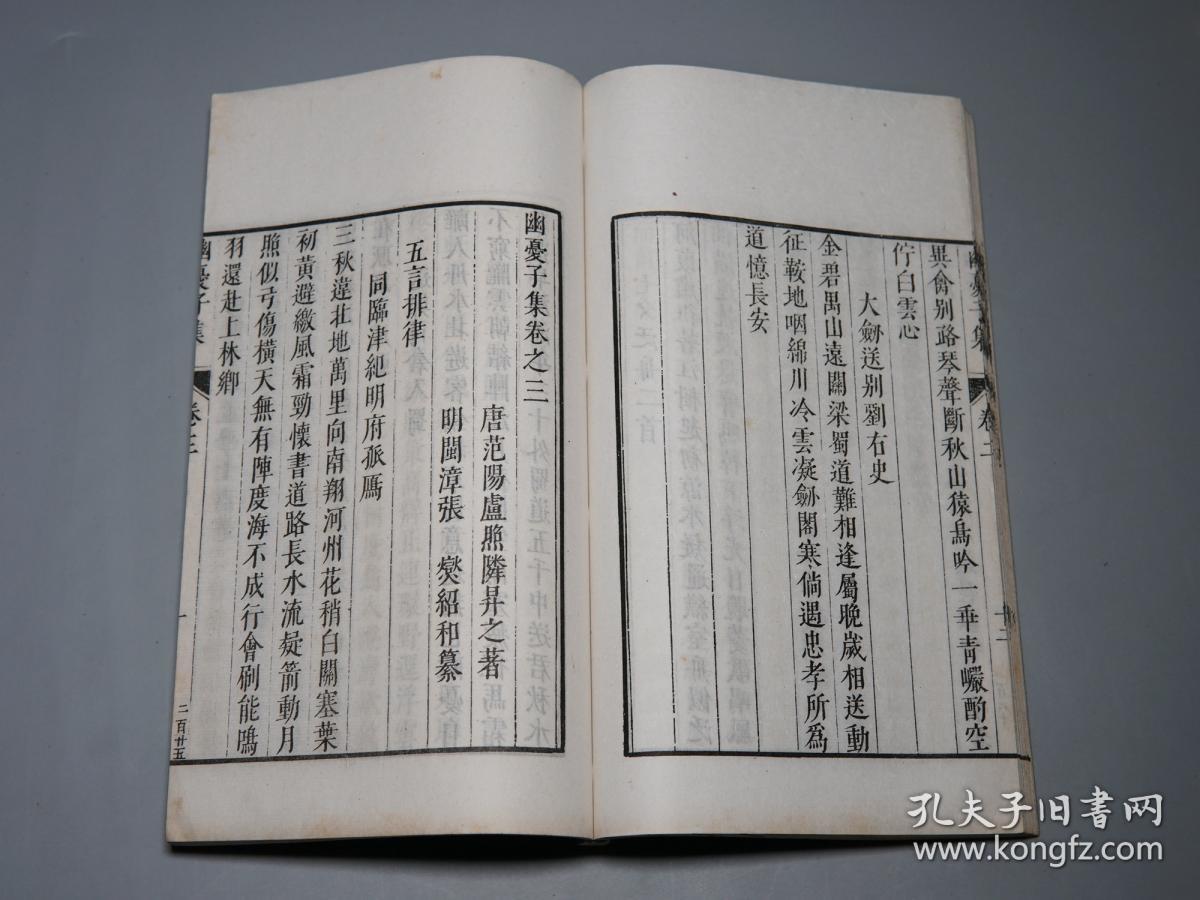 異禽別路琴聲斷秋山猿鳥吟一垂青巖酌空
佇白雲心
大劒送別劉右史
金碧禺山遠關梁蜀道難相逢屬晚歲相送動
征鞍地咽綿川冷雲凝劒閣寒倘遇忠孝所爲
道憶長安
幽憂子集 卷二 十三
幽憂子集卷之三
唐范陽盧照隣昇之著
明閩漳張 燮紹和纂
五言排律
同臨津紀明府孤鴈
三秋違北地萬里向南翔河州花稍白關塞葉
初黃避繳風霜勁懷書道路長水流疑箭動月
照似弓傷橫天無有陣度海不成行會刷能鳴
羽還赴上林鄉
幽憂子集 卷三 一 二百廿五
孔夫子旧书网
www.kongfz.com